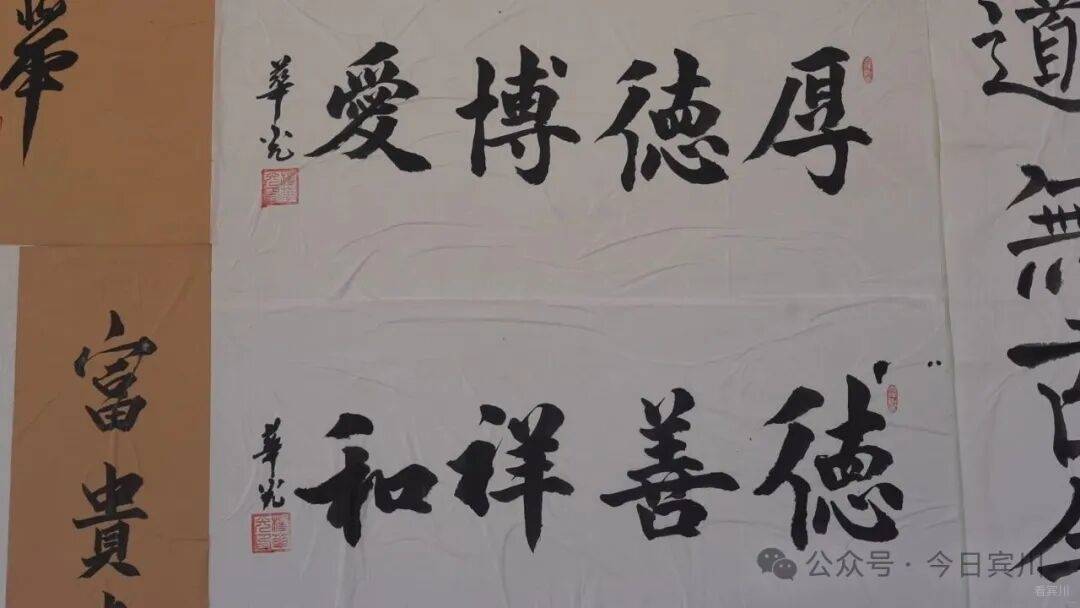 道無古今
厚德博愛
華光
德善祥和
華光
華
富貴
公众号·今日宾川
看宾川